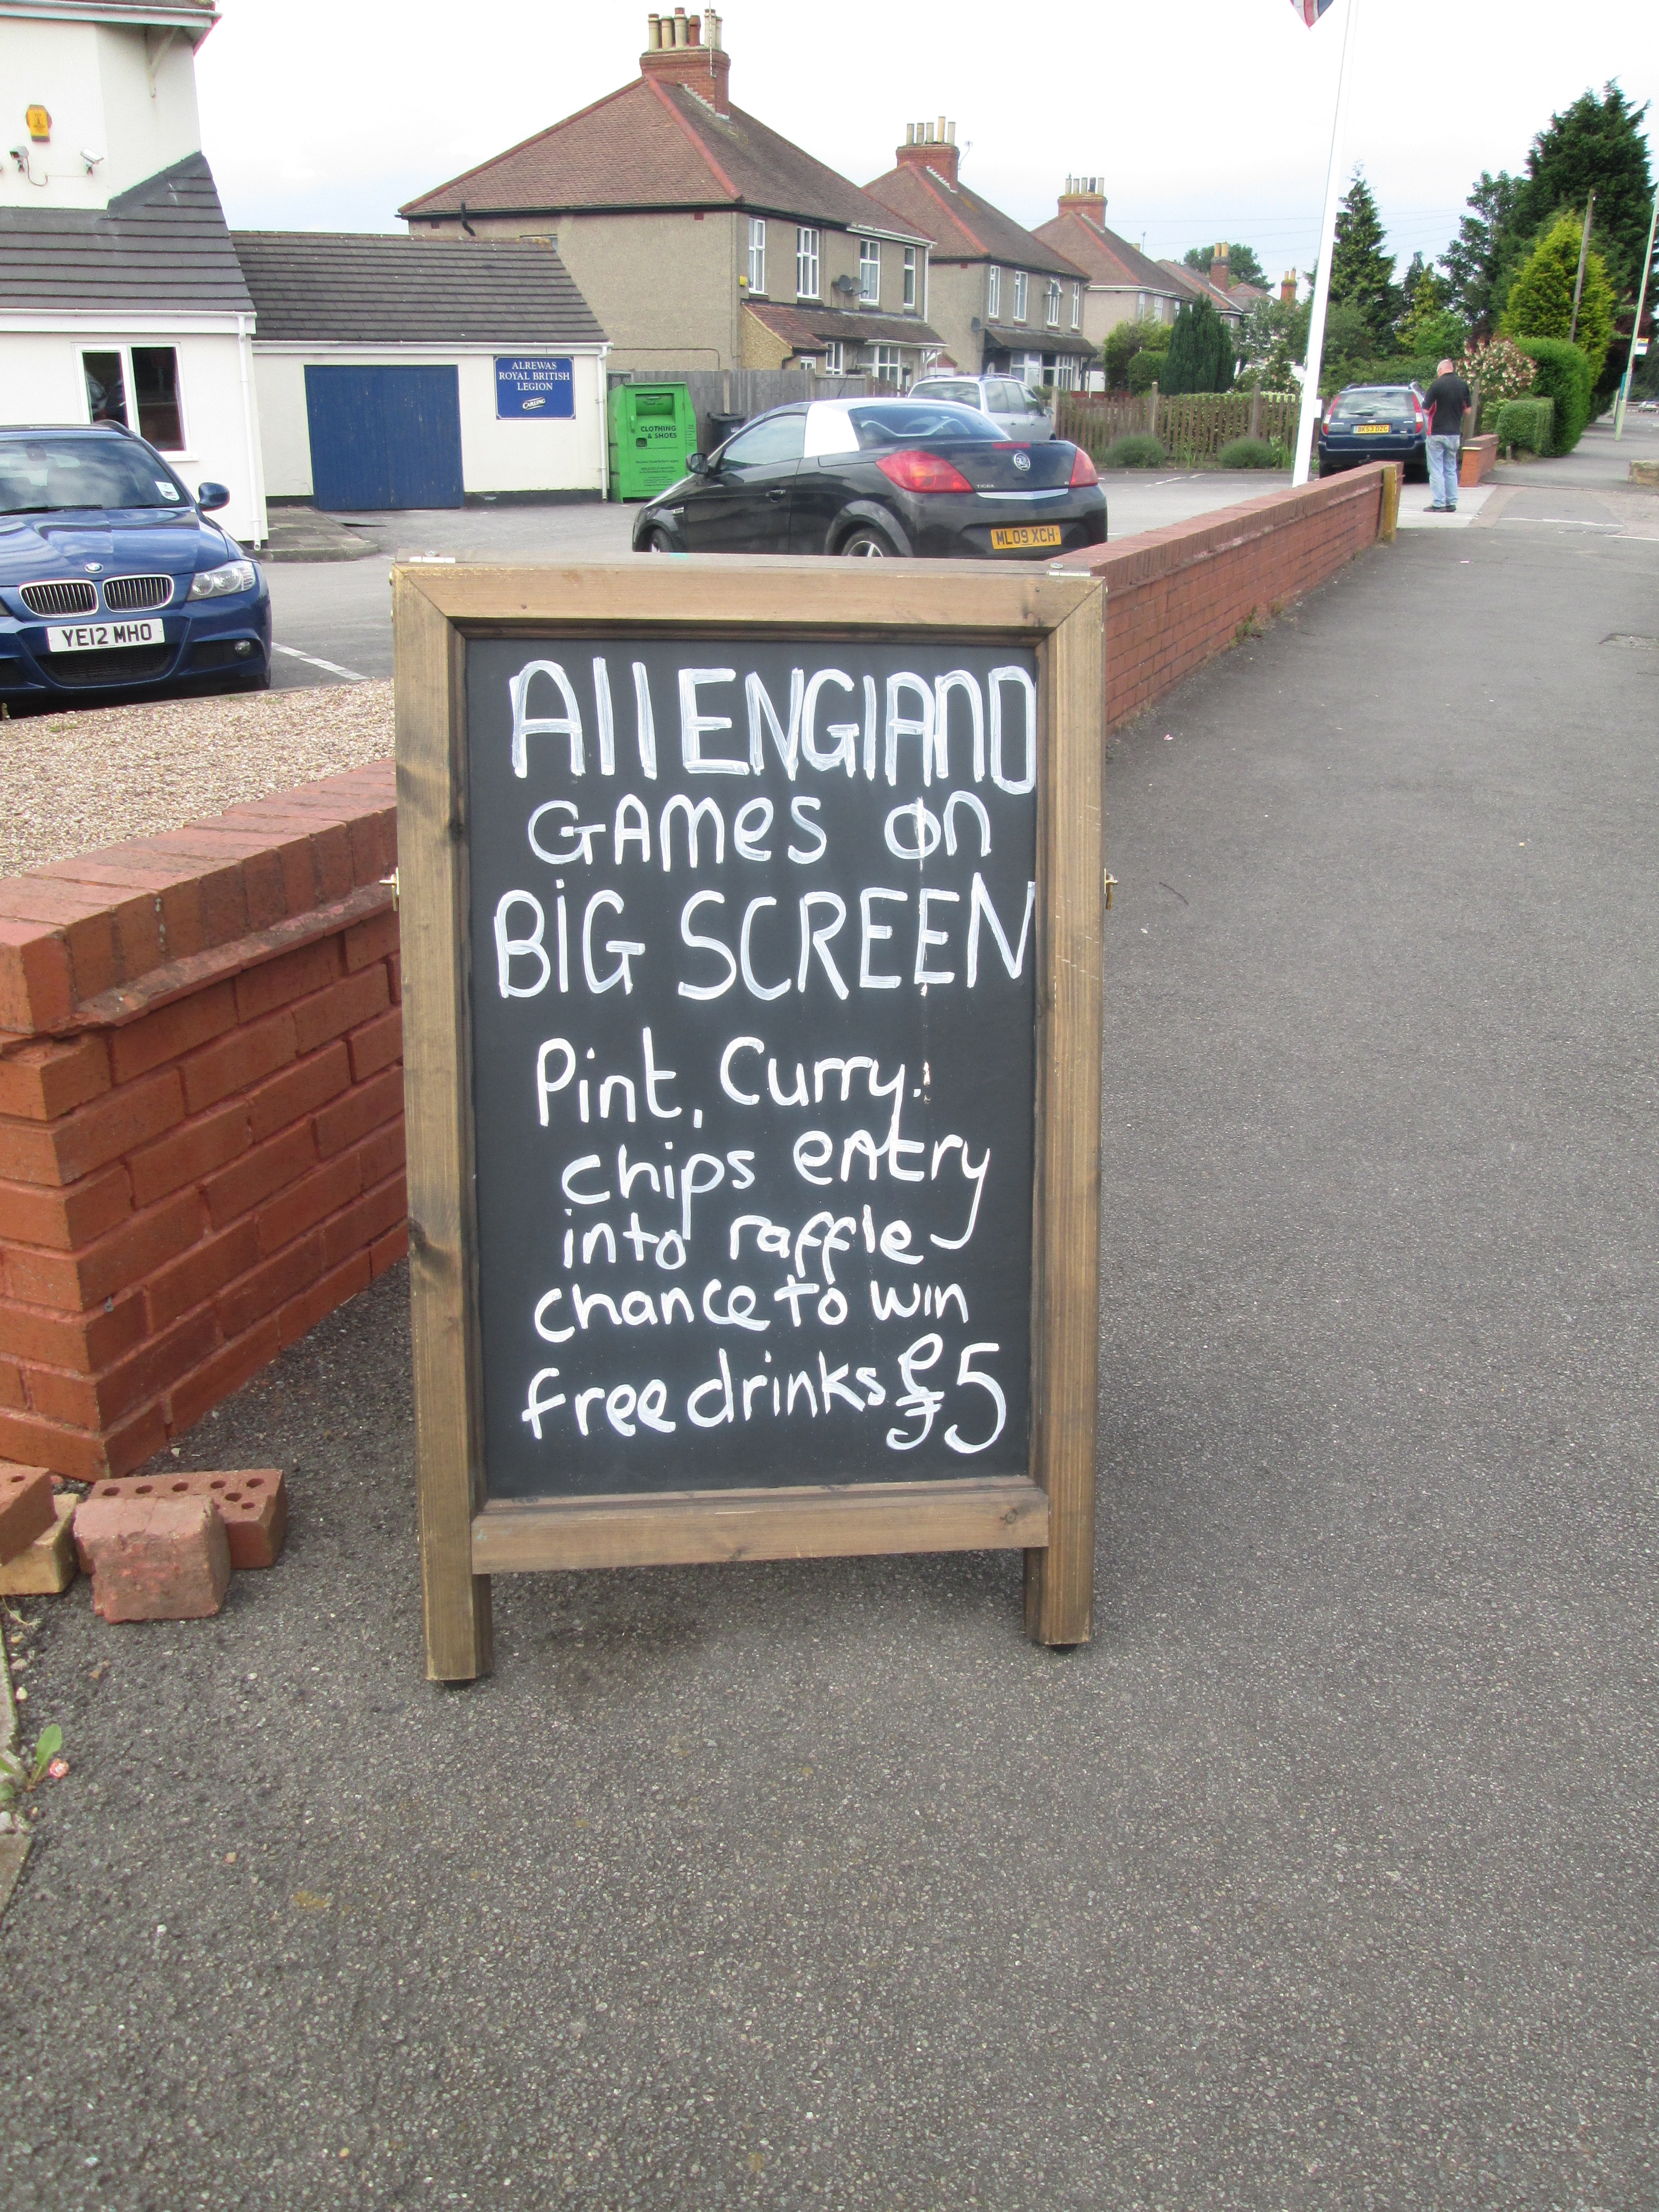 ALREWAS
ROYAL BRITISH
LEGION
CARLING
CLOTHING
& SHOES
BK53 OZC
TIGRA
ML09 XCH
YE12 MHO
All ENGlAnD
GAmes on
BiG SCREEN
Pint, Curry.
chips entry
into raffle
chance to win
free drinks £5